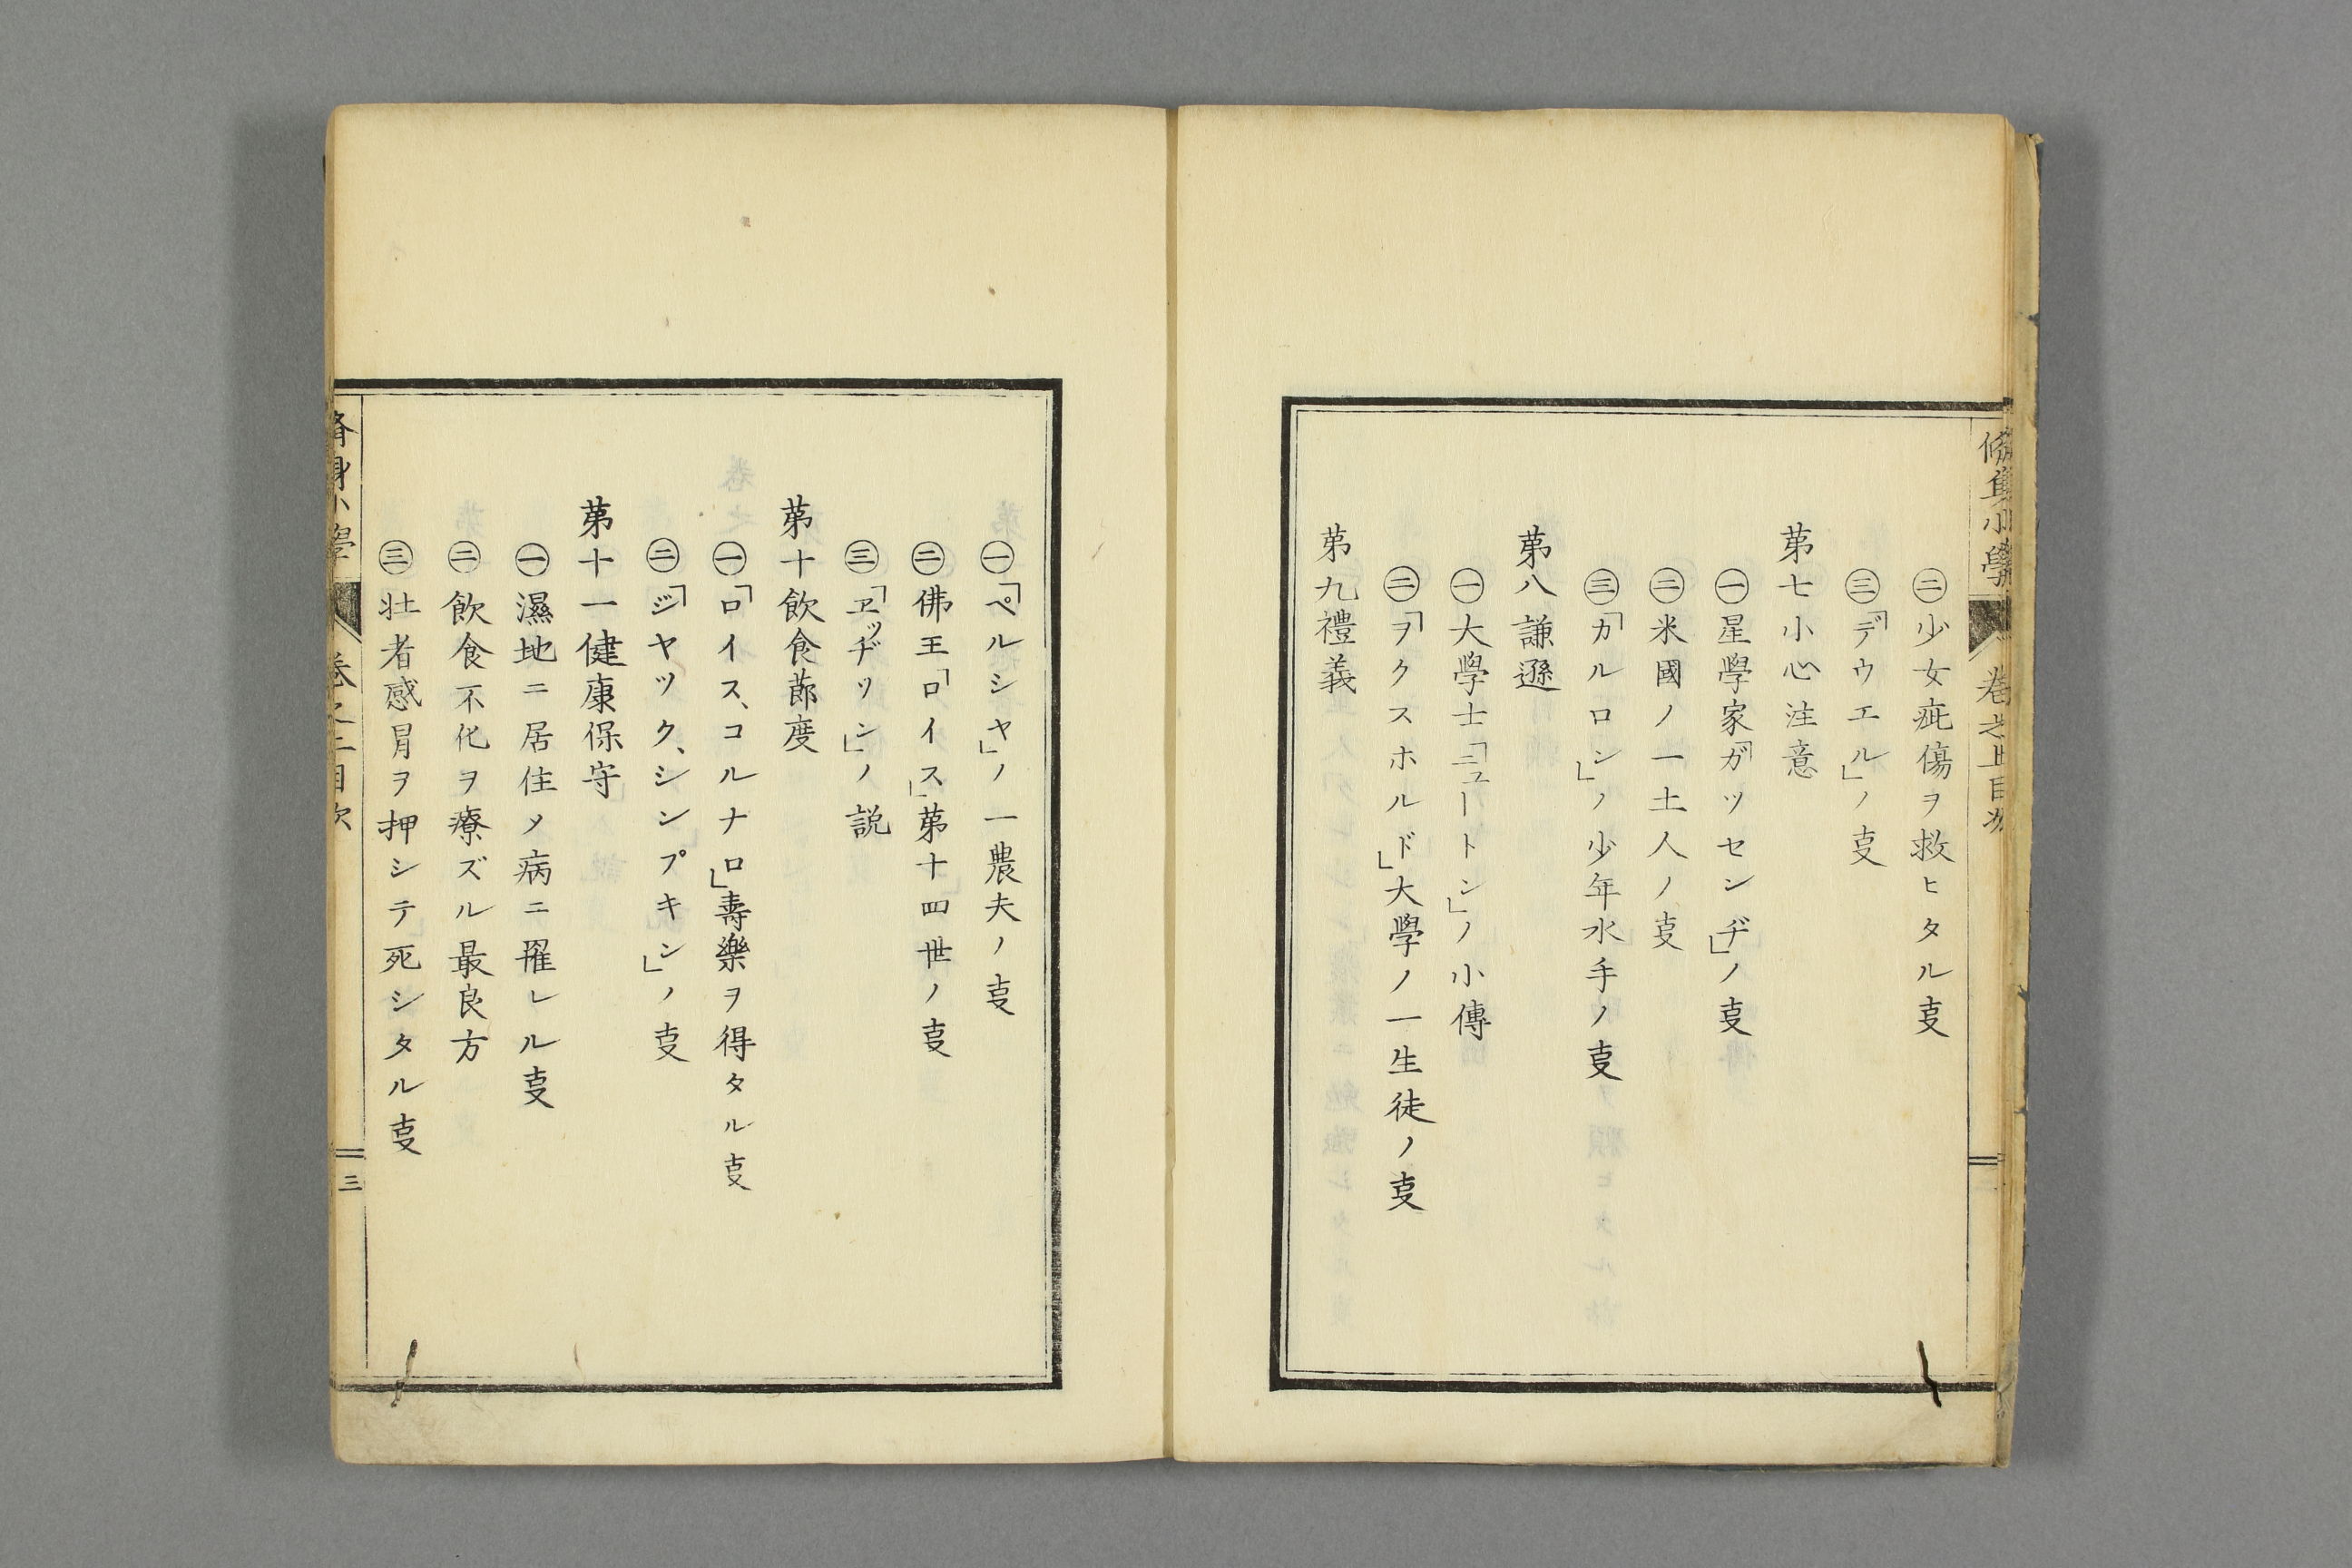 ㊁少女疵傷ヲ救ヒタル叓
㊂「デウエル」ノ叓
第七小心注意
㊀星學家「ガッセンヂ」ノ叓
㊁米國ノ一土人ノ叓
㊂「カルロン」ノ少年水手ノ叓
第八謙遜
㊀大學士「ニュートン」ノ小傳
㊁「ヲクスホルド」大學ノ一生徒ノ叓
第九禮義
㊀「ペルシヤ」ノ一農夫ノ叓
㊁佛王「ロイス」第十四世ノ叓
㊂「ヱッヂソン」ノ説
第十飲食節度
㊀「ロイス、コルナロ」壽樂ヲ得タル叓
㊁「ジヤツク、シンプキン」ノ叓
第十一健康保守
㊀濕地ニ居住メ病ニ罹レル叓
㊁飲食不化ヲ療ズル最良方
㊂壮者感冒ヲ押シテ死シタル叓
脩身小學 卷之上目次
三